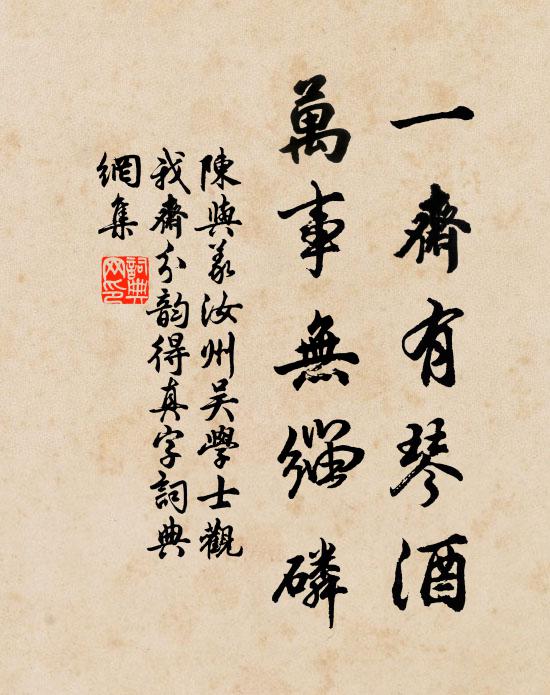 一齋有琴酒
萬事無緇磷
陳與義汝州吳學士觀
我齋分韵得真字詞典
網集
詞典網印